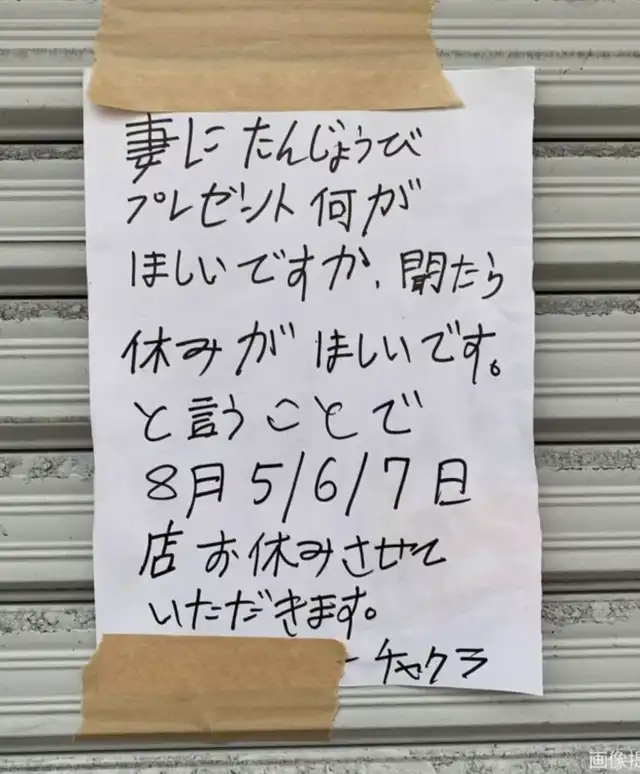 妻に たんじょうび
プレゼント 何が
ほしいですか、聞たら
休みが ほしいです。
と言うことで
8月 5/6/7 日
店 お休みさせて
いただきます。
ーチャクラ
画像提